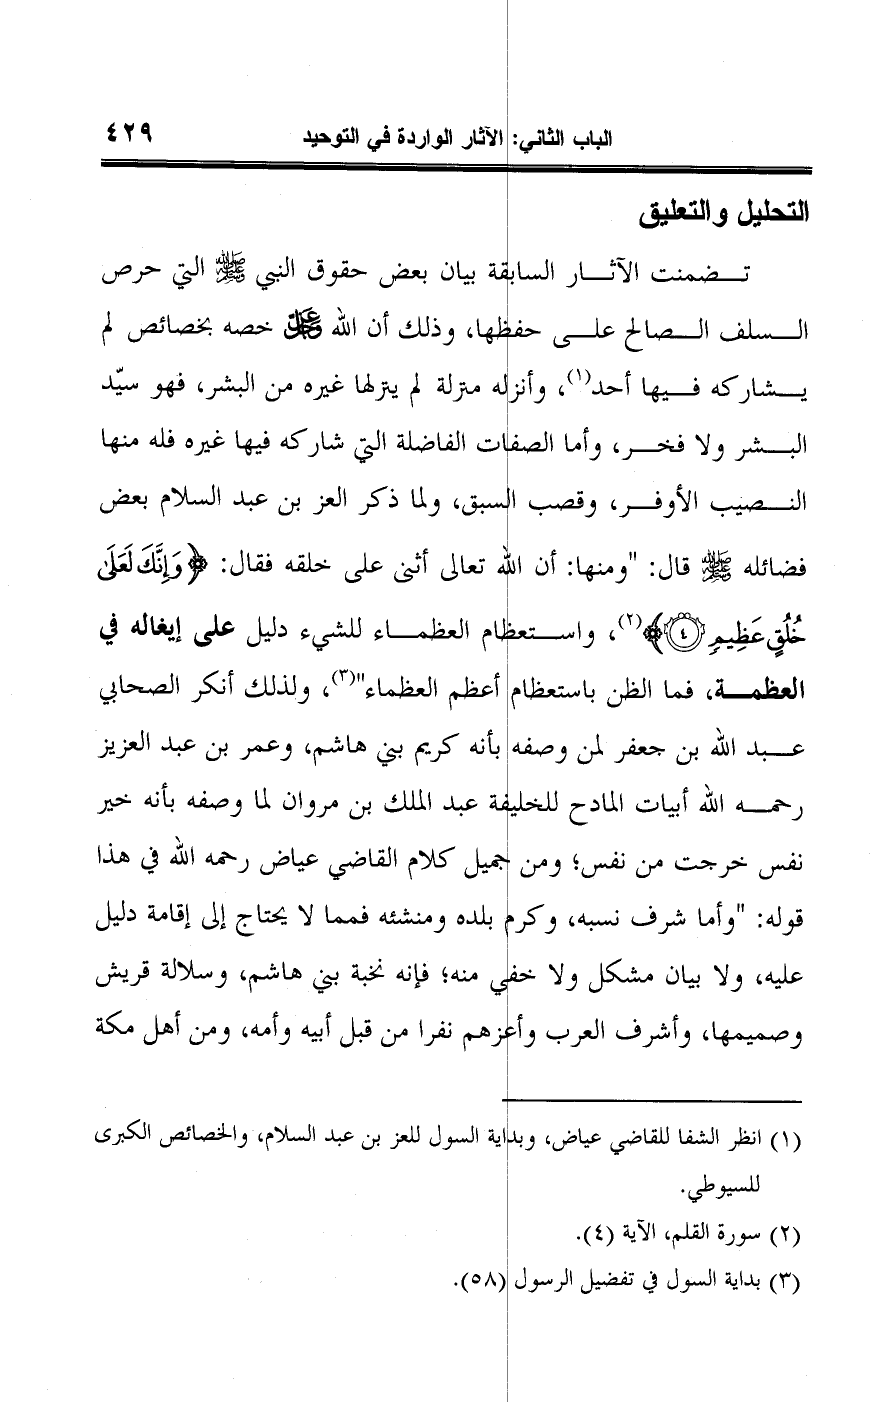 الباب الثاني: الآثار الواردة في التوحيد ٤٢٩
التحليل والتعليق
تـــضمنت الآثـــار السابقة بيان بعض حقوق النبي ﷺ التي حرص
الـــسلف الـــصالح علـــى حفظها، وذلك أن الله ﷻ خصه بخصائص لم
يـــشاركه فـــيها أحد(١)، وأنزله منزلة لم ينزلها غيره من البشر، فهو سيّد
البـــشر ولا فخـــر، وأما الصفات الفاضلة التي شاركه فيها غيره فله منها
النـــصيب الأوفـــر، وقصب السبق، ولما ذكر العز بن عبد السلام بعض
فضائله ﷺ قال: "ومنها: أن الله تعالى أثنى على خلقه فقال: ﴿وَإِنَّكَ لَعَلَىٰ
خُلُقٍ عَظِيمٍ ٤﴾(٢)، واســـتعظام العظمـــاء للشيء دليل على إيغاله في
العظمـــة، فما الظن باستعظام أعظم العظماء"(٣)، ولذلك أنكر الصحابي
عـــبد الله بن جعفر لمن وصفه بأنه كريم بني هاشم، وعمر بن عبد العزيز
رحمـــه الله أبيات المادح للخليفة عبد الملك بن مروان لما وصفه بأنه خير
نفس خرجت من نفس؛ ومن جميل كلام القاضي عياض رحمه الله في هذا
قوله: "وأما شرف نسبه، وكرم بلده ومنشئه فمما لا يحتاج إلى إقامة دليل
عليه، ولا بيان مشكل ولا خفي منه؛ فإنه نخبة بني هاشم، وسلالة قريش
وصميمها، وأشرف العرب وأعزهم نفرا من قبل أبيه وأمه، ومن أهل مكة
(١) انظر الشفا للقاضي عياض، وبداية السول للعز بن عبد السلام، والخصائص الكبرى
للسيوطي.
(٢) سورة القلم، الآية (٤).
(٣) بداية السول في تفضيل الرسول (٥٨).